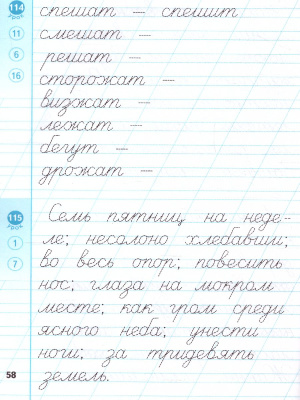 114 урок спешат — спешит
11 смешат —
6 решат —
16 сторожат —
визжат —
лежат —
бегут —
дрожат —
115 урок Семь пятниц на неде-
1 ле; несолоно хлебавши;
7 во весь опор; повесить
нос; глаза на мокром
месте; как гром среди
ясного неба; унести
ноги; за тридевять
58 земель.